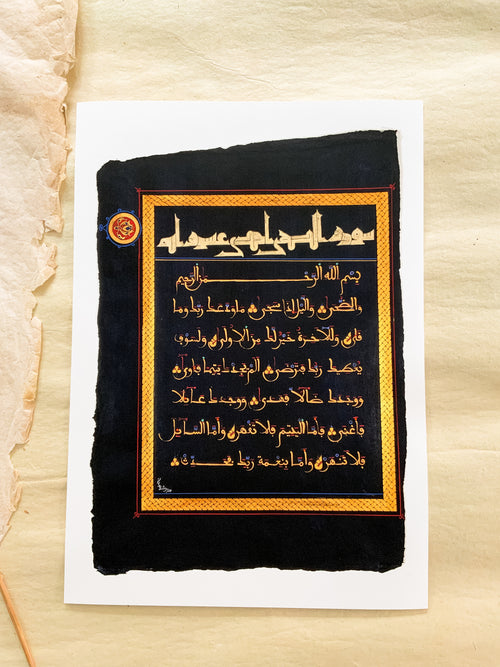 سورة الضحى احدى عشرة اية
بِسْمِ اللَّهِ الرَّحْمَنِ الرَّحِيمِ
وَالضُّحَى وَاللَّيْلِ إِذَا سَجَى مَا وَدَّعَكَ رَبُّكَ وَمَا
قَلَى وَلَلْآخِرَةُ خَيْرٌ لَكَ مِنَ الْأُولَى وَلَسَوْفَ
يُعْطِيكَ رَبُّكَ فَتَرْضَى أَلَمْ يَجِدْكَ يَتِيمًا فَآوَى
وَوَجَدَكَ ضَالًّا فَهَدَى وَوَجَدَكَ عَائِلًا
فَأَغْنَى فَأَمَّا الْيَتِيمَ فَلَا تَقْهَرْ وَأَمَّا السَّائِلَ
فَلَا تَنْهَرْ وَأَمَّا بِنِعْمَةِ رَبِّكَ فَحَدِّثْ